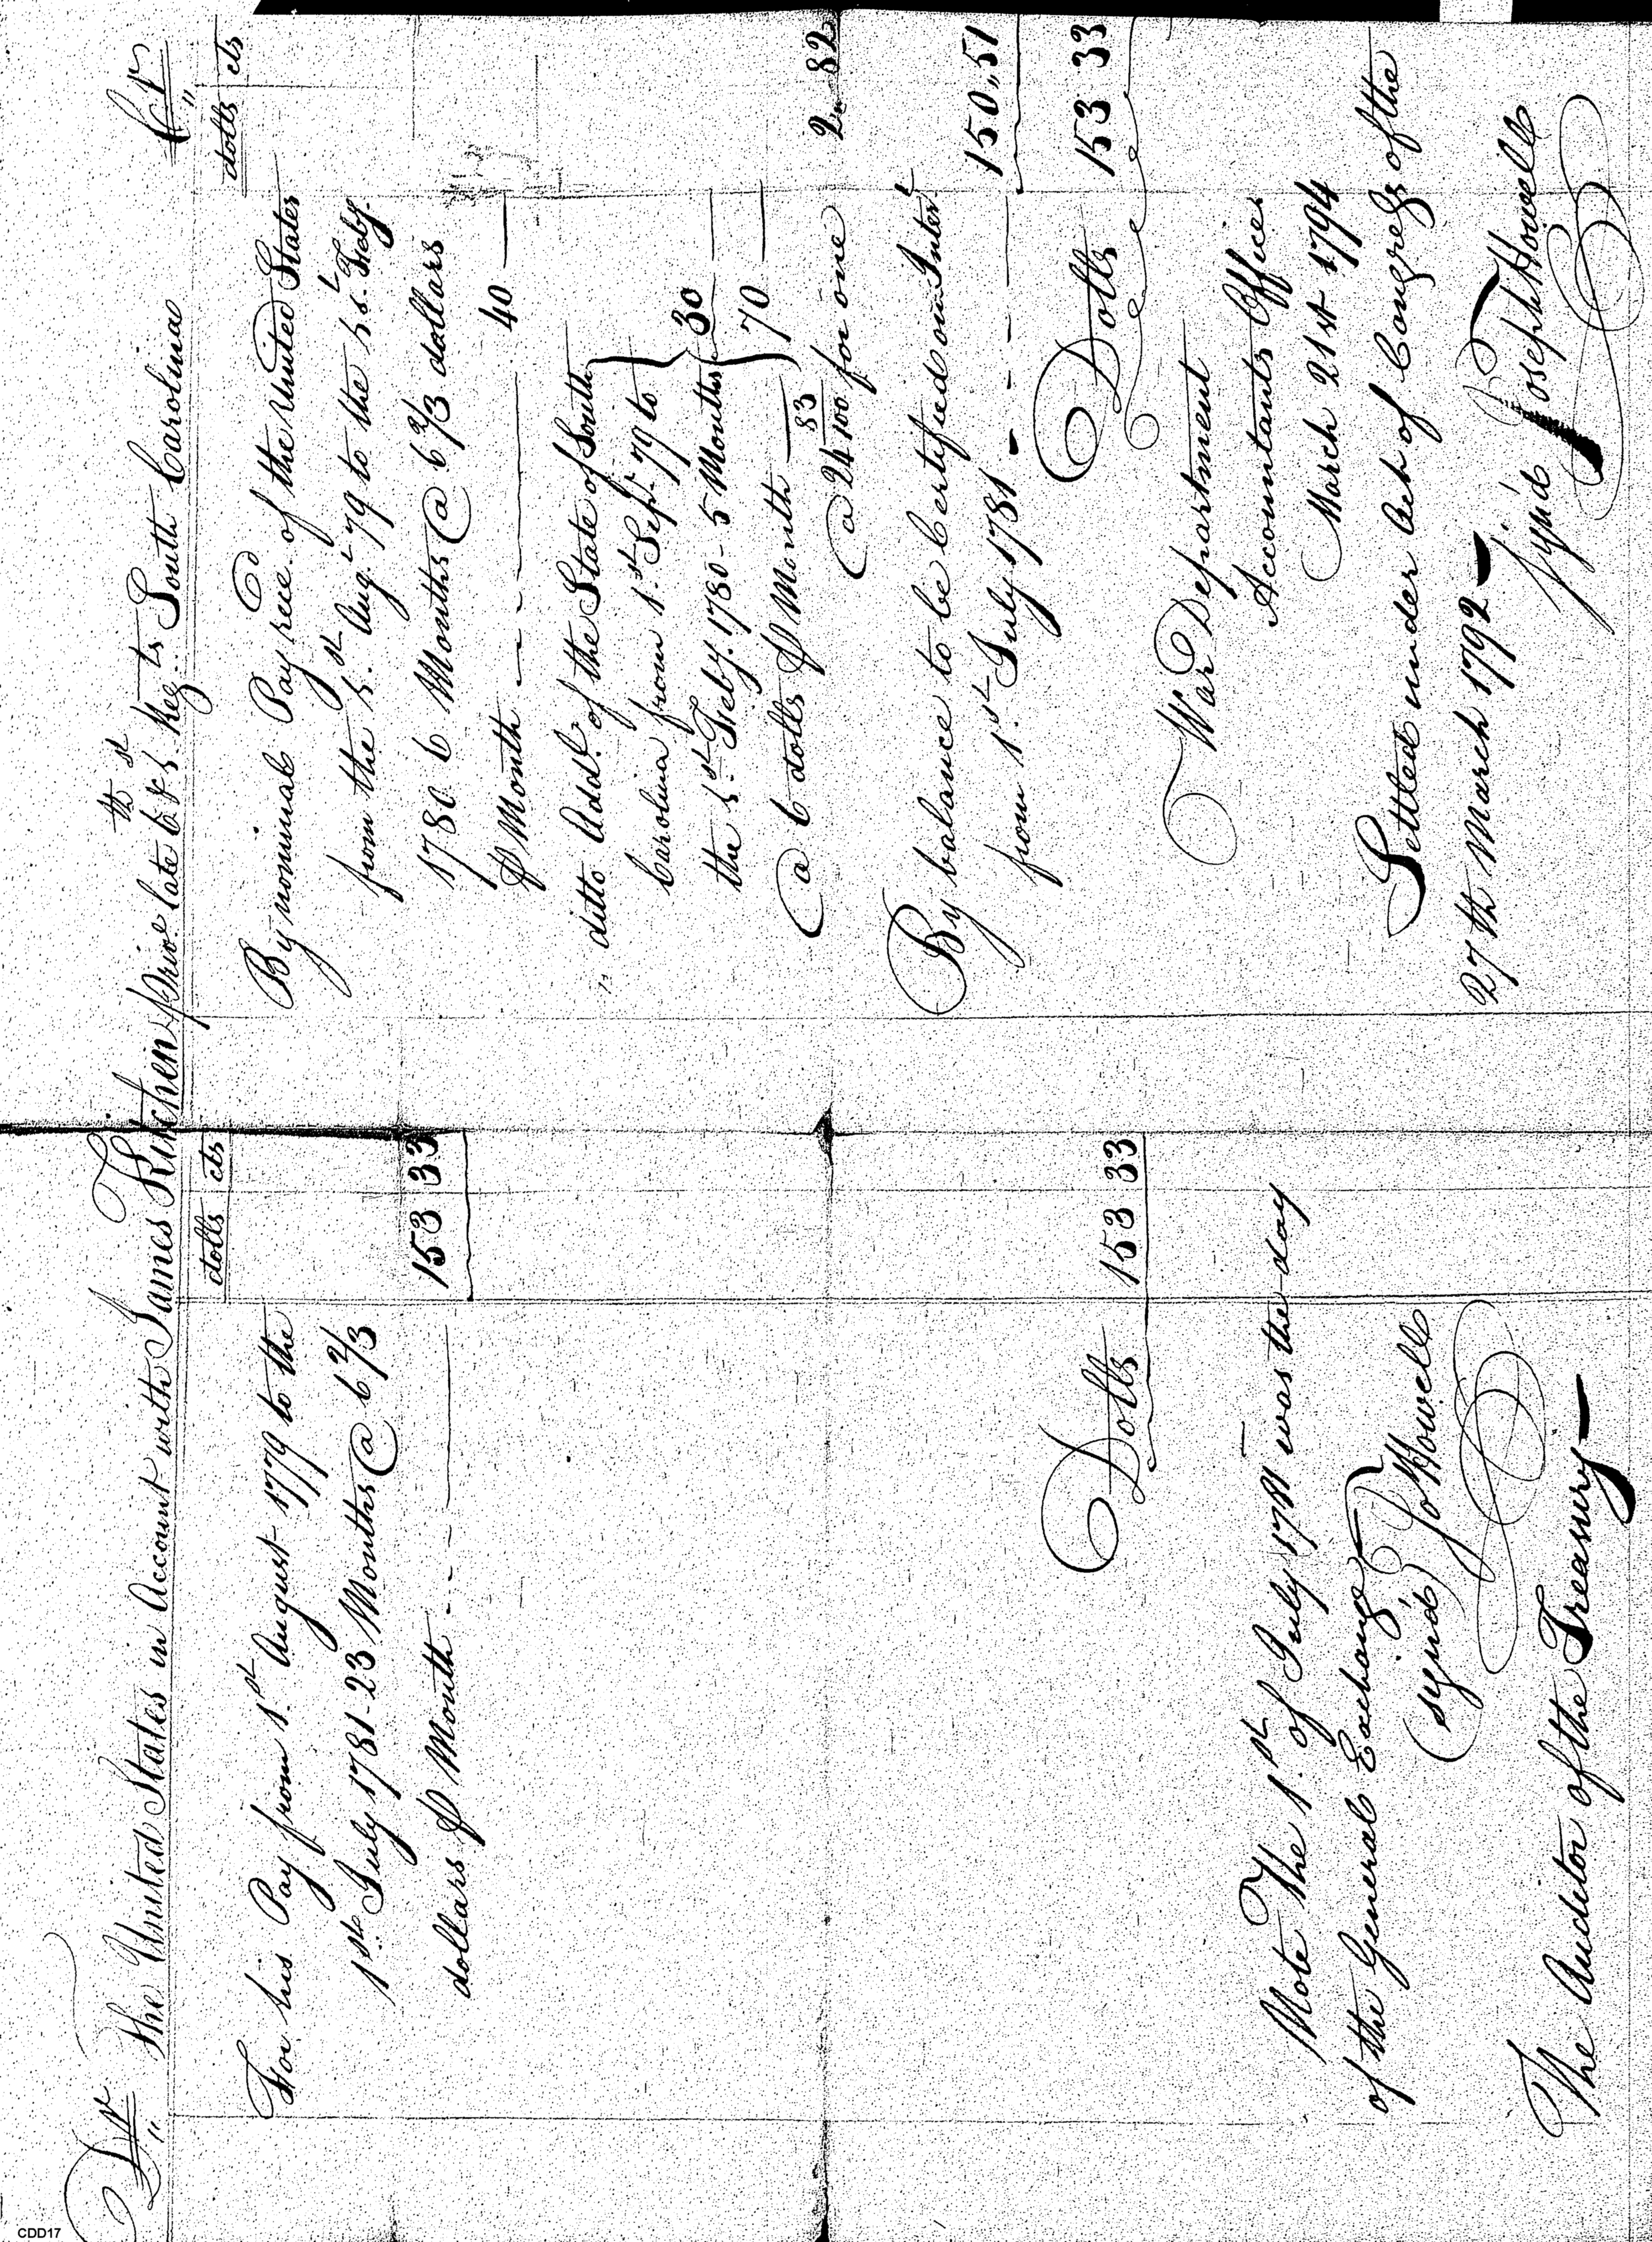 Dr The United States in Account with James Kitchen priv.e late 6th & 1st Reg.ts South Carolina Cr
dolls cts
For his Pay from 1.st August 1779 to the
1st July 1781 - 23 Months @ 6 2/3
dollars ⅌ Month - - - 153 33
Dolls 153 33
Note The 1.st of July 1781 was the day
of the General Exchange
(sign'd) Jo Howell
The Auditor of the Treasury
dolls cts
By nominal Pay rece.d of the United States
from the 1.st Aug.t 79 to the 1st. Feby.
1780 6 Months @ 6 2/3 dollars
⅌ Month - - - - 40
" ditto Add.l of the State of South
Carolina from 1.st Sep.t 79 to
the 1.st Feby. 1780 - 5 Months 30
@ 6 dolls ⅌ Month 70
@ 24 83/100 for one 2 " 82
By balance to be Certified on Inter.t
from 1.st July 1781 - - - - 150,,51
Dolls 153 33
War Department
Accountants Office
March 21st 1794
Settled under Act of Congress of the
27th March 1792
Sign'd Joseph Howell
CDD17